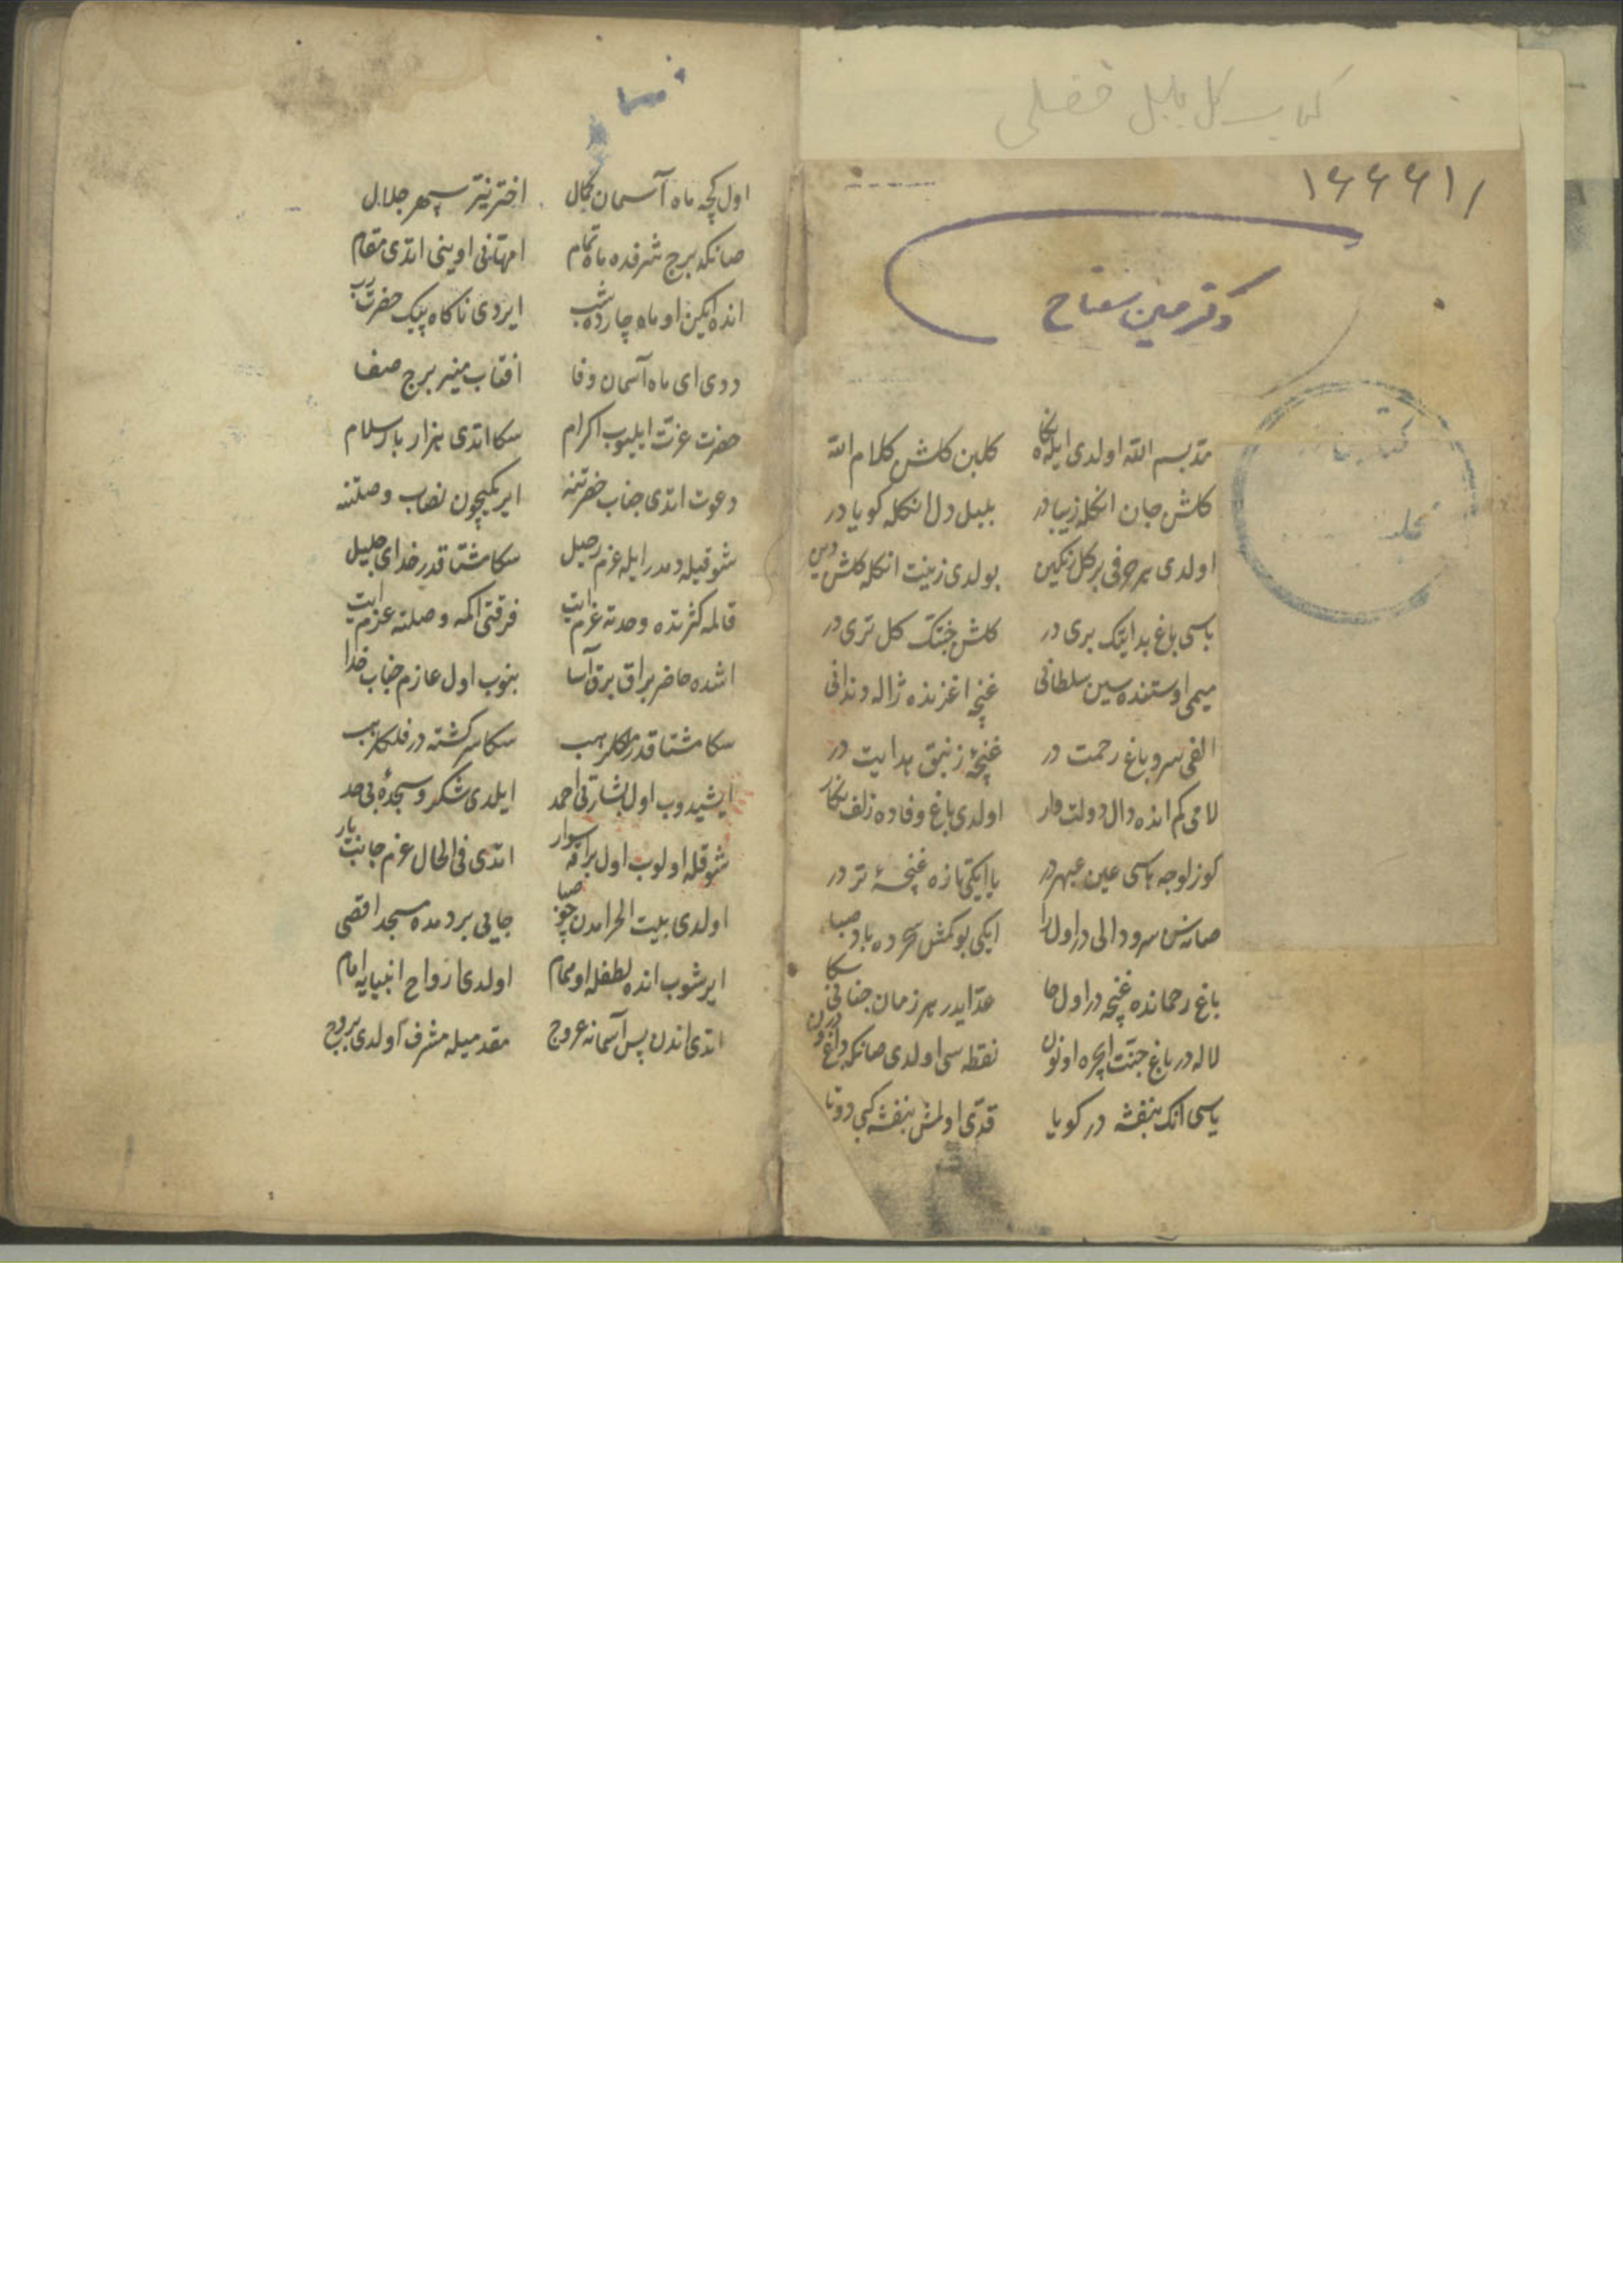 کتاب گل بلبل فضلی
۱۶۶۶۱/
دکتر حسین مفتاح
مد بسم الله اولدی ایله نکاه کلبن کلشن کلام الله
کلشن جان انکله زیبا در بلبل دل انکله کویا در
اولدی هر حرفی بر کل رنکین بولدی زینت انکله کلشن دین
باسی باغ هدایتک بری در کلشن جنتک کل تری در
میمی اوستنده سین سلطانی غنچه اغزنده ژاله دندانی
الفی سرو باغ رحمت در غنچهٔ زنبق هدایت در
لامی کم انده دال دولت وار اولدی باغ وفاده زلف نکار
کوزلوجه هاسی عین عبهر در یا ایکی تازه غنچهٔ تر در
صانه سن سرو دالی در اول را ایکی بوکمش سحرده باد صبا
باغ رحمانده غنچه در اول حا مد ایدر هر زمان جنانی سکا
لاله در باغ جنت ایچره او نون نقطه سی اولدی صانکه داغ درون
یاسی انک بنفشه در کویا قدی اولمش بنفشه کبی دوتا
اول کیجه ماه آسمان کمال اختر نیر سپهر جلال
صانکه برج شرفده ماه تمام امهانی اوینی اتدی مقام
انده ایکن او ماه چارده شب ایردی ناکاه پیک حضرت رب
ددی ای ماه آسمان وفا افتاب منیر برج صفا
حضرت عزت ایلیوب اکرام سکا اتدی هزار بار سلام
دعوت اتدی جناب حضرتنه ایر یکیچون نصاب وصلتنه
شوقیله دمدر ایله عزم رحیل سکا مشتاقدر خدای جلیل
قالمه کثرتده وحدته عزم ایت فرقتی اکمه وصلته عزم ایت
اشده حاضر براق برق آسا بنوب اول عازم جناب خدا
سکا مشتاقدر ملکلر هب سکا سرکشته در فلکلر هب
ایشیدوب اول بشارتی احمد ایلدی شکر و سجدهٔ بی حد
شوقله اولوب اول براقه سوار اتدی فی الحال عزم جانب یار
اولدی بیت الحرامدن چو صبا جایی بر دمده مسجد اقصی
ایرشوب انده لطفله او همام اولدی ارواح انبیایه امام
اتدی اندن پس آسمانه عروج مقدمیله مشرف اولدی بروج